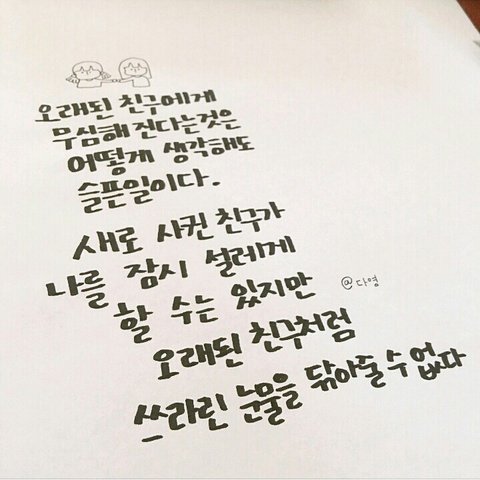 오래된 친구에게
무심해 진다는것은
어떻게 생각해도
슬픈일이다.
새로 사귄 친구가
나를 잠시 설레게
할 수는 있지만
@다영
오래된 친구처럼
쓰라린 눈물을 닦아줄 수 없다